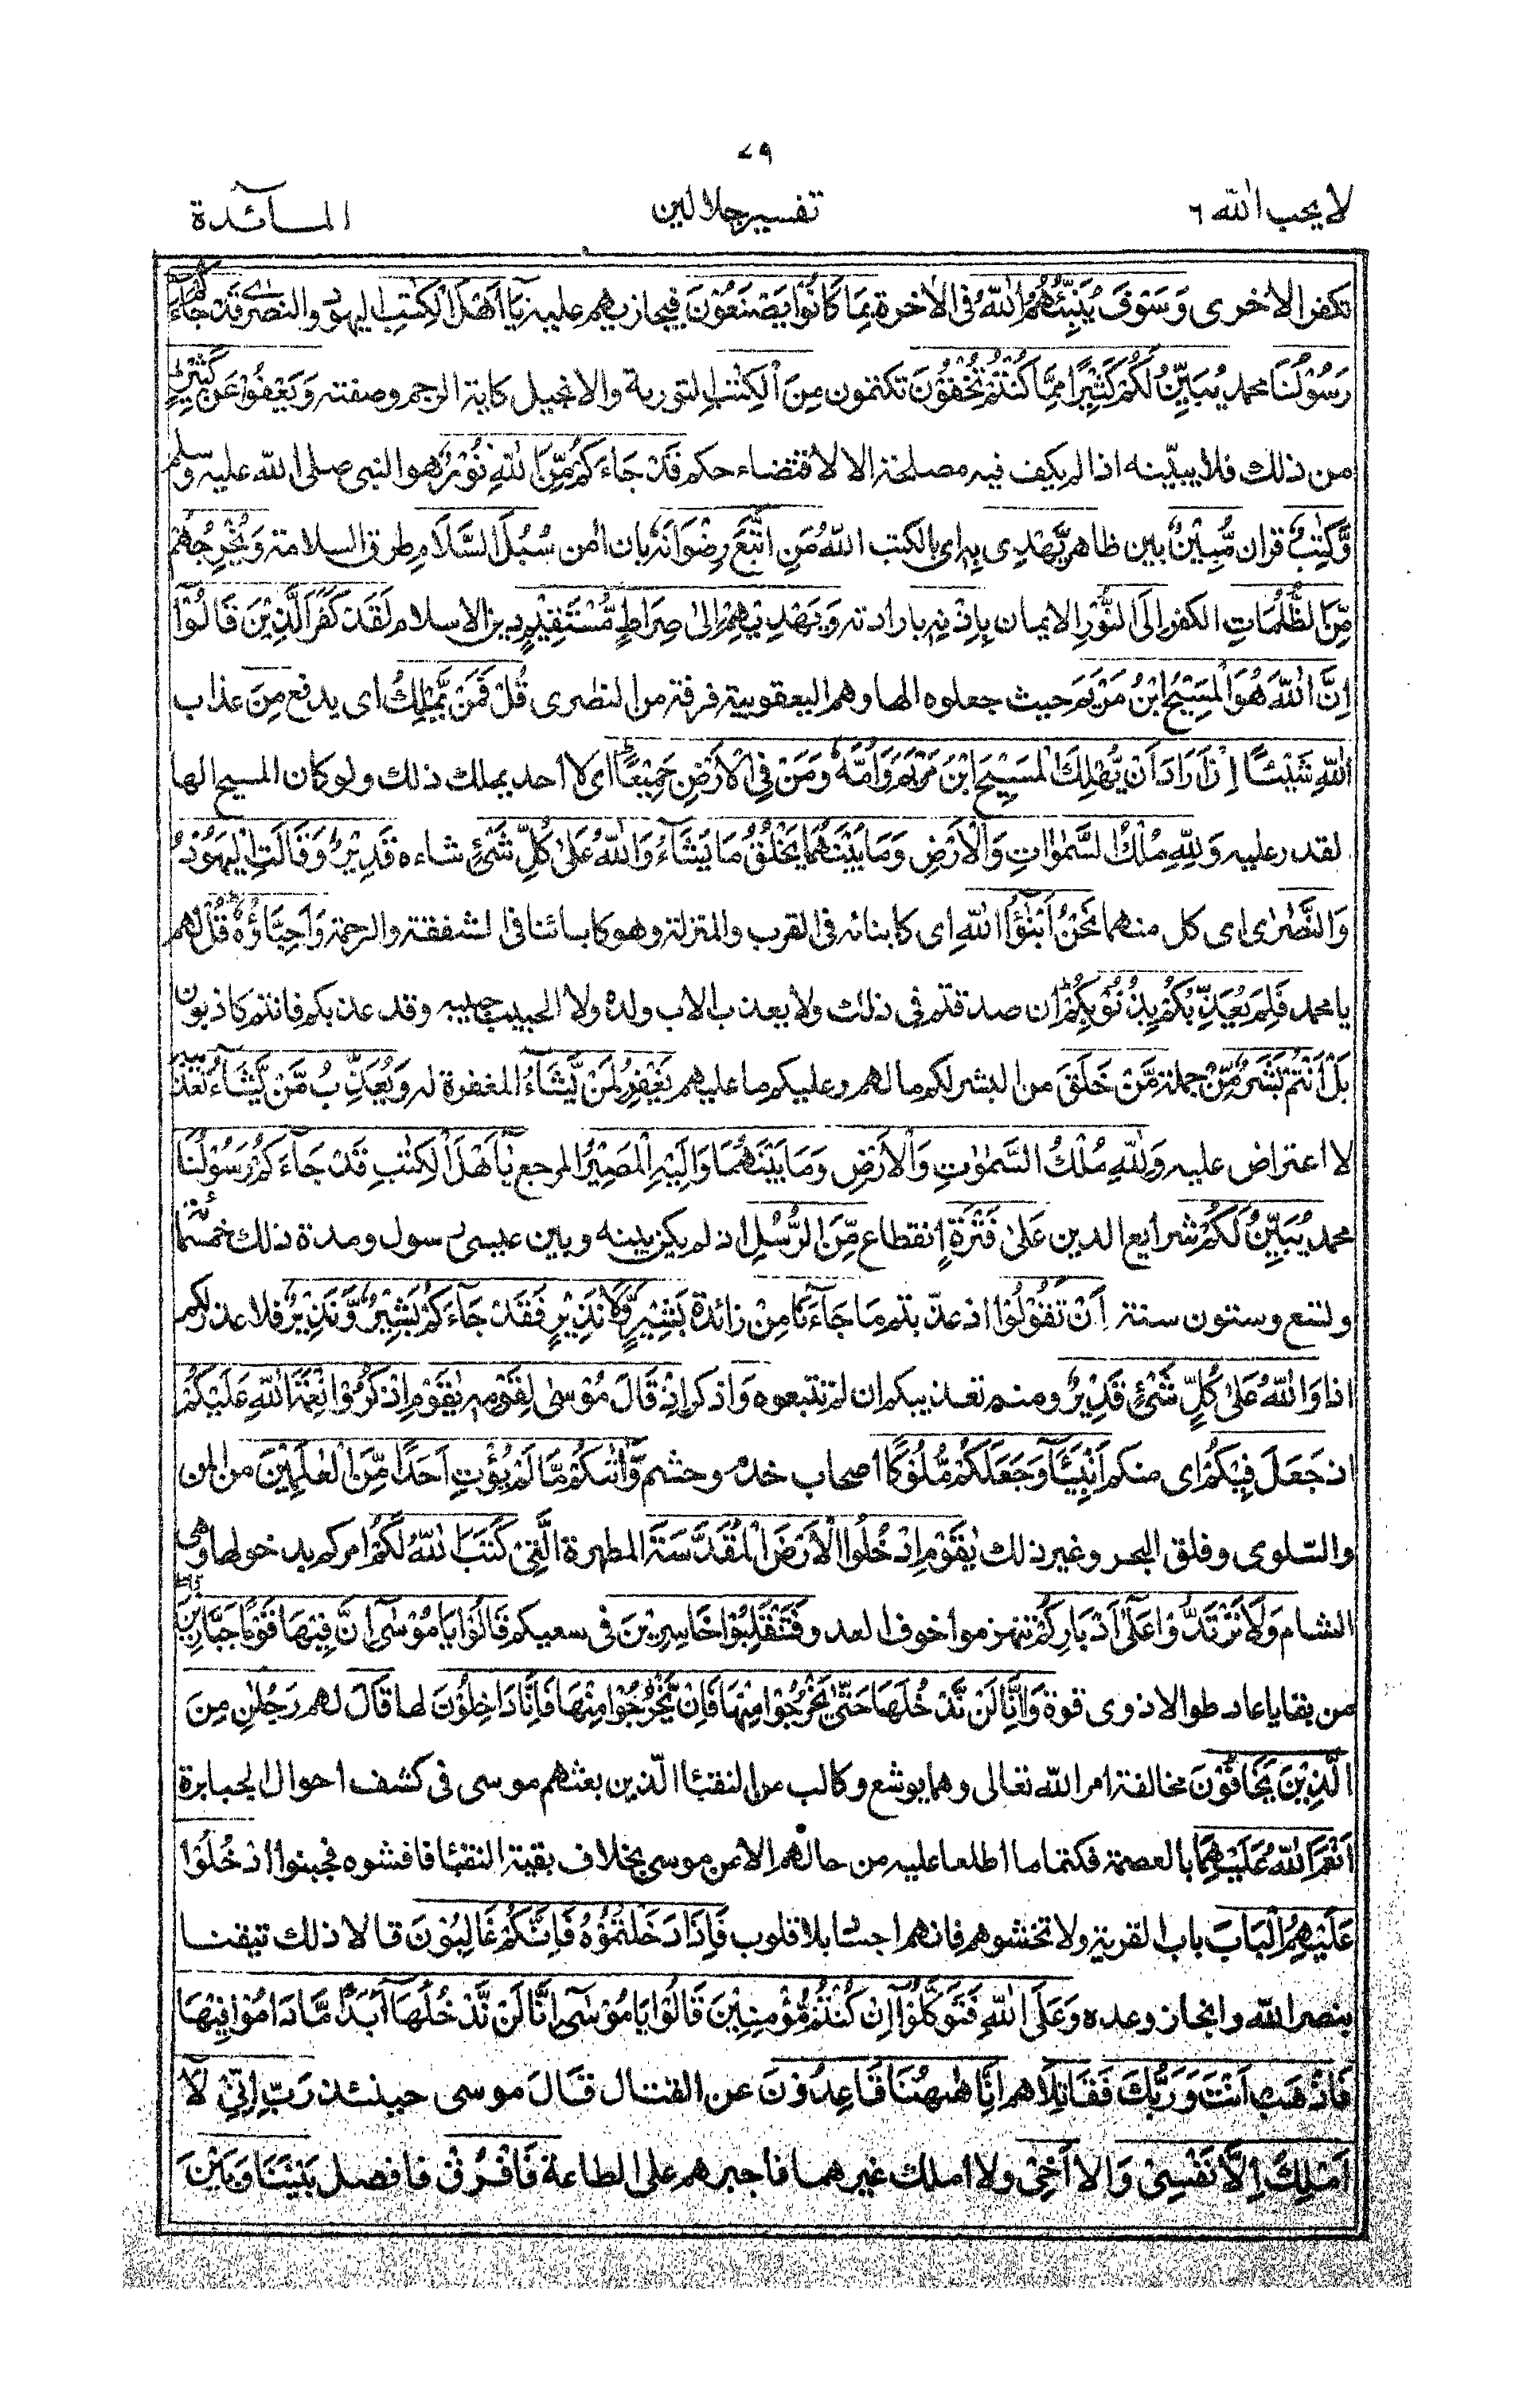 ٧٩
لا يحب الله ٦ تفسير جلالين المآئدة
تكفر الاخرى وَسَوْفَ يُنَبِّئُهُمُ اللّٰهُ فى الاخرة بِمَا كَانُوْا يَصْنَعُوْنَ فيجازيهم عليه يٰٓاَهْلَ الْكِتٰبِ اليهود والنصرى قَدْ جَآءَكُمْ
رَسُوْلُنَا محمد يُبَيِّنُ لَكُمْ كَثِيْرًا مِمَّا كُنْتُمْ تُخْفُوْنَ تكتمون مِنَ الْكِتٰبِ التورية والانجيل كاية الرجم وصفته وَيَعْفُوْا عَنْ كَثِيْرٍ
من ذلك فلا يبيّنه اذا لم يكف فيه مصلحة الا لاقتضاء حكم قَدْ جَآءَكُمْ مِّنَ اللّٰهِ نُوْرٌ هو النبى صلى الله عليه وسلم
وَّكِتٰبٌ قران مُّبِيْنٌ بين ظاهر يَّهْدِى بِهِ اى بالكتب اللّٰهُ مَنِ اتَّبَعَ رِضْوَانَهٗ بان امن سُبُلَ السَّلَامِ طرق السلامة وَيُخْرِجُهُمْ
مِّنَ الظُّلُمَاتِ الكفر اِلَى النُّوْرِ الايمان بِاِذْنِهٖ بارادته وَيَهْدِيْهِمْ اِلٰى صِرَاطٍ مُّسْتَقِيْمٍ دين الاسلام لَقَدْ كَفَرَ الَّذِيْنَ قَالُوْٓا
اِنَّ اللّٰهَ هُوَ الْمَسِيْحُ ابْنُ مَرْيَمَ حيث جعلوه الها وهم اليعقوبية فرقة من النصرى قُلْ فَمَنْ يَّمْلِكُ اى يدفع مِنَ عذاب
اللّٰهِ شَيْئًا اِنْ اَرَادَ اَنْ يُّهْلِكَ الْمَسِيْحَ ابْنَ مَرْيَمَ وَاُمَّهٗ وَمَنْ فِى الْاَرْضِ جَمِيْعًا اى لا احد يملك ذلك ولو كان المسيح الها
لقدر عليه وَلِلّٰهِ مُلْكُ السَّمٰوَاتِ وَالْاَرْضِ وَمَا بَيْنَهُمَا يَخْلُقُ مَا يَشَآءُ وَاللّٰهُ عَلٰى كُلِّ شَىْءٍ شاءه قَدِيْرٌ وَقَالَتِ الْيَهُوْدُ
وَالنَّصٰرٰى اى كل منهما نَحْنُ اَبْنٰٓؤُا اللّٰهِ اى كابنائه فى القرب والمنزلة وهو كابائنا فى الشفقة والرحمة وَاَحِبَّاؤُهٗ قُلْ لهم
يا محمد فَلِمَ يُعَذِّبُكُمْ بِذُنُوْبِكُمْ ان صدقتم فى ذلك ولا يعذب الاب ولده ولا الحبيب حبيبه وقد عذبكم فانتم كاذبون
بَلْ اَنْتُمْ بَشَرٌ مِّنْ جملة مَّنْ خَلَقَ من البشر لكم ما لهم وعليكم ما عليهم يَغْفِرُ لِمَنْ يَّشَآءُ المغفرة له وَيُعَذِّبُ مَّنْ يَّشَآءُ تعذيبه
لا اعتراض عليه وَلِلّٰهِ مُلْكُ السَّمٰوٰتِ وَالْاَرْضِ وَمَا بَيْنَهُمَا وَاِلَيْهِ الْمَصِيْرُ المرجع يٰٓاَهْلَ الْكِتٰبِ قَدْ جَآءَكُمْ رَسُوْلُنَا
محمد يُبَيِّنُ لَكُمْ شرايع الدين عَلٰى فَتْرَةٍ انقطاع مِّنَ الرُّسُلِ اذ لم يكن بينه وبين عيسى رسول ومدة ذلك خمسمائة
وتسع وستون سنة اَنْ تَقُوْلُوْا اذ عذّبتم مَا جَآءَنَا مِنْ زائدة بَشِيْرٍ وَّلَا نَذِيْرٍ فَقَدْ جَآءَكُمْ بَشِيْرٌ وَّنَذِيْرٌ فلا عذر لكم
اذا وَاللّٰهُ عَلٰى كُلِّ شَىْءٍ قَدِيْرٌ ومنه تعذيبكم ان لم تتبعوه وَ اذكر اِذْ قَالَ مُوْسٰى لِقَوْمِهٖ يٰقَوْمِ اذْكُرُوْا نِعْمَةَ اللّٰهِ عَلَيْكُمْ
اذ جَعَلَ فِيْكُمْ اى منكم اَنْبِيَآءَ وَجَعَلَكُمْ مُّلُوْكًا اصحاب خدم وحشم وَّاٰتٰىكُمْ مَّا لَمْ يُؤْتِ اَحَدًا مِّنَ الْعٰلَمِيْنَ من المن
والسّلوى وفلق البحر وغير ذلك يٰقَوْمِ ادْخُلُوا الْاَرْضَ الْمُقَدَّسَةَ المطهرة الَّتِىْ كَتَبَ اللّٰهُ لَكُمْ امركم بدخولها وهى
الشام وَلَا تَرْتَدُّوْا عَلٰٓى اَدْبَارِكُمْ تنهزموا خوف العدو فَتَنْقَلِبُوْا خَاسِرِيْنَ فى سعيكم قَالُوْا يَا مُوْسٰٓى اِنَّ فِيْهَا قَوْمًا جَبَّارِيْنَ
من بقايا عاد طوالا ذوى قوة وَاِنَّا لَنْ نَّدْخُلَهَا حَتّٰى يَخْرُجُوْا مِنْهَا فَاِنْ يَّخْرُجُوْا مِنْهَا فَاِنَّا دَاخِلُوْنَ لها قَالَ لهم رَجُلٰنِ مِنَ
الَّذِيْنَ يَخَافُوْنَ مخالفة امر الله تعالى وهما يوشع وكالب من النقباء الّذين بعثهم موسى فى كشف احوال الجبابرة
اَنْعَمَ اللّٰهُ عَلَيْهِمَا بالعصمة فكتما ما اطلعا عليه من حالهم الا عن موسى بخلاف بقية النقبا فافشوه فجبنوا ادْخُلُوْا
عَلَيْهِمُ الْبَابَ باب القرية ولا تخشوهم فانهم اجساد بلا قلوب فَاِذَا دَخَلْتُمُوْهُ فَاِنَّكُمْ غَالِبُوْنَ قالا ذلك تيقنا
بنصر الله وانجاز وعده وَعَلَى اللّٰهِ فَتَوَكَّلُوْآ اِنْ كُنْتُمْ مُّؤْمِنِيْنَ قَالُوْا يَا مُوْسٰٓى اِنَّا لَنْ نَّدْخُلَهَآ اَبَدًا مَّا دَامُوْا فِيْهَا
فَاذْهَبْ اَنْتَ وَرَبُّكَ فَقَاتِلَا هم اِنَّا هٰهُنَا قَاعِدُوْنَ عن القتال قَالَ موسى حينئذ رَبِّ اِنِّىْ لَآ
اَمْلِكُ اِلَّا نَفْسِىْ وَ الا اَخِىْ ولا املك غيرهما فاجبرهم على الطاعة فَافْرُقْ فافصل بَيْنَنَا وَبَيْنَ